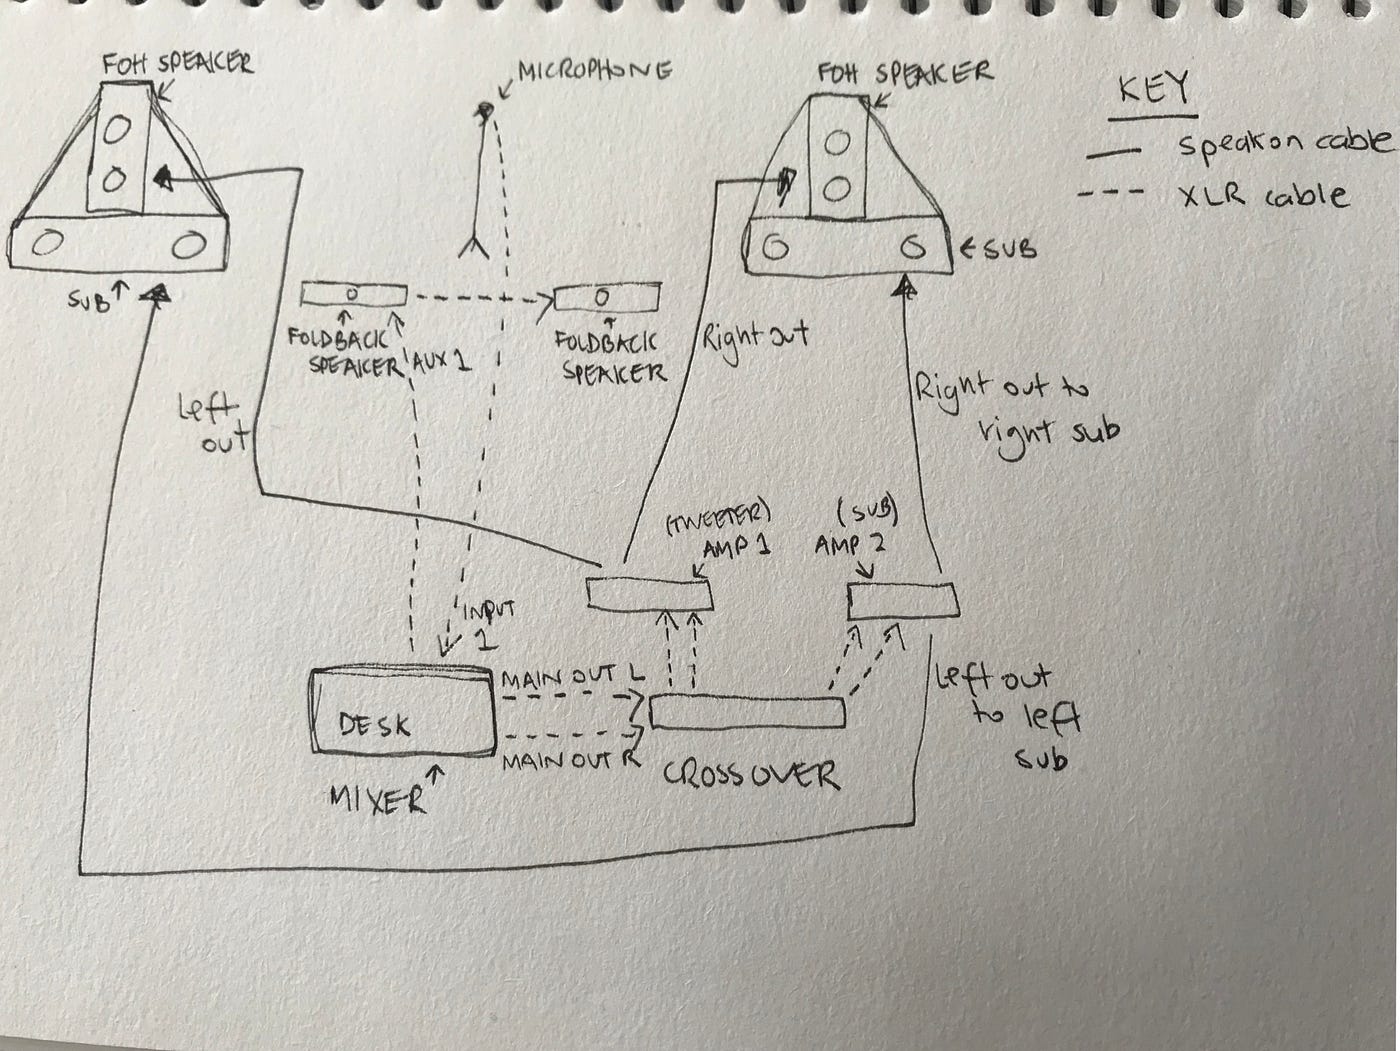 FOH SPEAKER
MICROPHONE
FOH SPEAKER
KEY
speakon cable
XLR cable
SUB
SUB
FOLDBACK
SPEAKER
AUX 1
FOLDBACK
SPEAKER
Right out
Left
out
Right out to
right sub
(TWEETER)
AMP 1
(SUB)
AMP 2
INPUT
1
MAIN OUT L
DESK
MAIN OUT R
MIXER
CROSSOVER
Left out
to left
sub